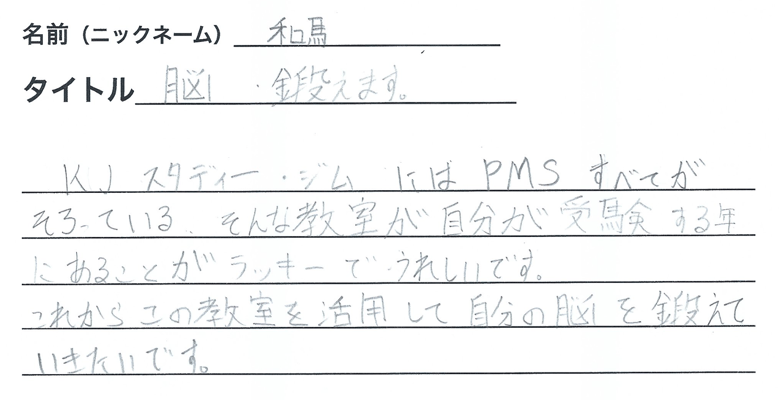 名前（ニックネーム） 和馬
タイトル 脳・鍛えます。
KJ スタディー・ジム には PMS すべてが
そろっている。そんな教室が自分が受験する年
にあることがラッキーでうれしいです。
これからこの教室を活用して自分の脳を鍛えて
いきたいです。